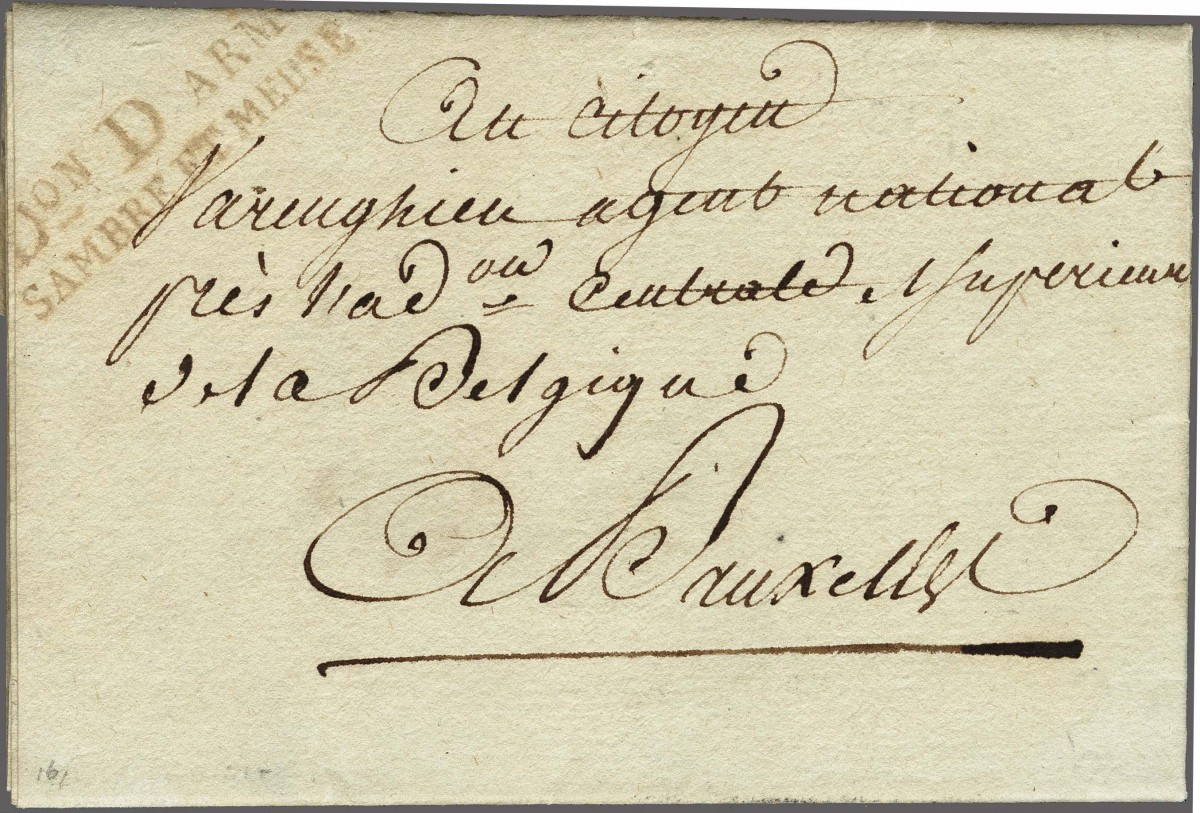 Don D ARM
SAMBRE ET MEUSE
Au citoyen
Varenghien agent national
près l'ad on Centrale et Superieure
de la Belgique
A Bruxelles
161